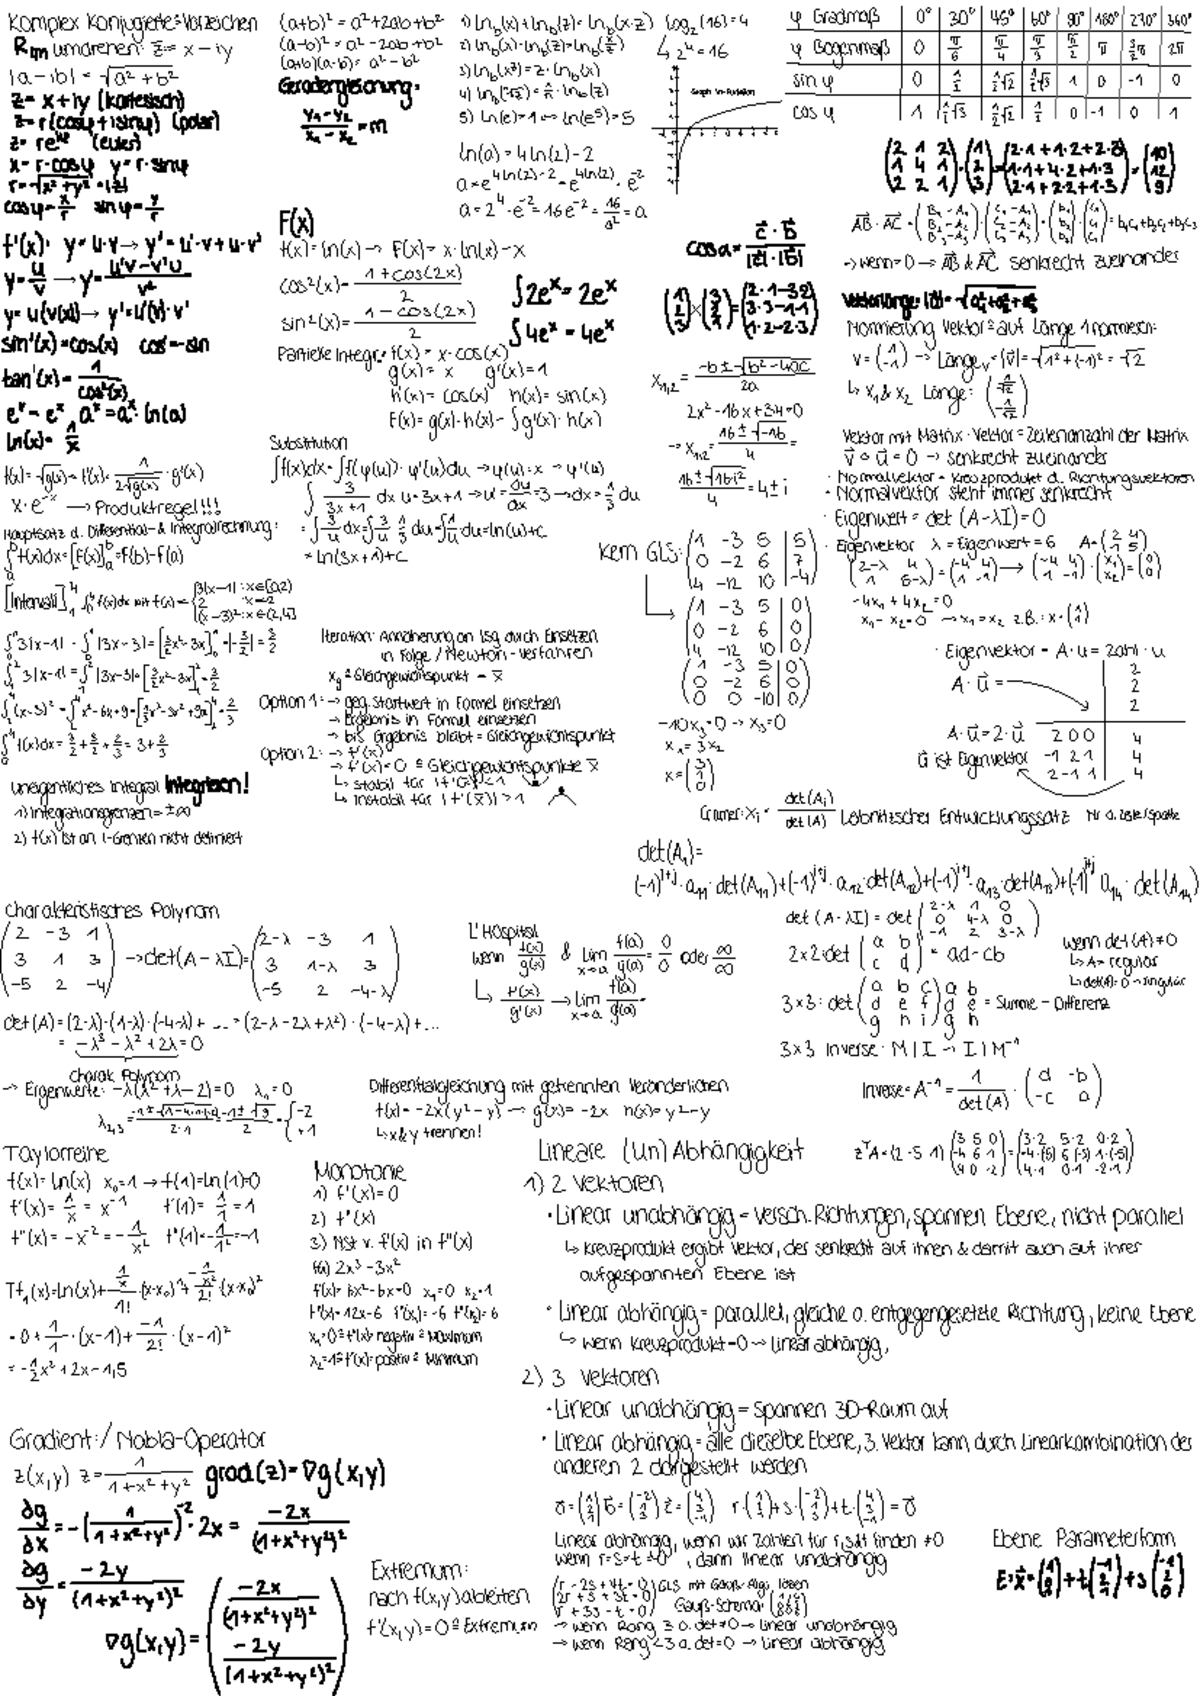 Komplex Konjugierte = Vorzeichen
R Im umdrehen: z̄ = x - iy
|a - ib| = √(a² + b²)
z = x + iy (kartesisch)
z = r(cosφ + i sinφ) (polar)
z = re^(iφ) (euler)
x = r·cosφ y = r·sinφ
r = √(x² + y²) = |z|
cosφ = x/r sinφ = y/r
f'(x): y = u·v → y' = u'·v + u·v'
y = u/v → y = (u'v - v'u)/v²
y = u(v(x)) → y' = u'(v)·v'
sin'(x) = cos(x) cos' = -sin
tan'(x) = 1/cos²(x)
e^x = e^x a^x = a^x · ln(a)
ln(x) = 1/x
f(x) = √g(x) = f'(x) = 1/(2√g(x)) · g'(x)
x·e^-x → Produktregel!!!
Hauptsatz d. Differential- & Integralrechnung:
∫f(x)dx = [F(x)] = F(b) - F(a)
[Intervall] ∫f(x)dx mit f(x) = {3|x-1|: x∈[0,2) 2 x=2 (x-3)²: x∈(2,4]
∫3|x-1| = ∫|3x-3| = [3/2x² - 3x] = |-3/2| = 3/2
∫3|x-1| = ∫|3x-3| = [3/2x² - 3x] = 3/2
∫(x-3)² = ∫x² - 6x + 9 = [1/3x³ - 3x² + 9x] = 2/3
∫f(x)dx = 3/2 + 3/2 + 2/3 = 3 + 2/3
uneigentliches Integral Integrieren!
1) Integrationsgrenzen = ±∞
2) f(x) ist an 1-Grenzen nicht definiert
(a+b)² = a² + 2ab + b²
(a-b)² = a² - 2ab + b²
(a+b)(a-b) = a² - b²
Geradengleichung:
(y₁ - y₂)/(x₁ - x₂) = m
1) ln_b(x) + ln_b(z) = ln_b(x·z)
2) ln_b(x) - ln_b(z) = ln_b(x/z)
3) ln_b(x^z) = z·ln_b(x)
5) ln(e) = 1 ⇔ ln(e⁵) = 5
log₂(16) = 4
↳ 2⁴ = 16
Graph ln-Funktion
ln(a) = 4 ln(2) - 2
a = e^(4ln(2)-2) = e^(4ln(2)) · e^-2
a = 2⁴ · e^-2 = 16e^-2 = 16/e² = a
F(x)
f(x) = ln(x) → F(x) = x·ln(x) - x
cos²(x) = (1 + cos(2x))/2
sin²(x) = (1 - cos(2x))/2
∫2e^x = 2e^x
∫4e^x = 4e^x
Partielle Integr.: f(x) = x·cos(x)
g(x) = x g'(x) = 1
h'(x) = cos(x) h(x) = sin(x)
F(x) = g(x)·h(x) - ∫g'(x)·h(x)
Substitution
∫f(x)dx = ∫f(φ(u))·φ'(u)du → φ(u) = x → φ'(u)
∫3/(3x+1) dx u = 3x+1 → u' = du/dx = 3 → dx = 1/3 du
= ∫3/u dx = ∫3/u 1/3 du = ∫1/u du = ln(u) + c
= ln(3x+1) + c
Iteration: Annäherung an lsg durch Einsetzen
in Folge / Newton-Verfahren
x_g ≙ Gleichgewichtspunkt = x̄
Option 1: → geg. Startwert in Formel einsetzen
→ Ergebnis in Formel einsetzen
→ bis Ergebnis bleibt = Gleichgewichtspunkt
Option 2: → f'(x)
→ f'(x) = 0 ≙ Gleichgewichtspunkte x̄
↳ stabil für |f'(x̄)| < 1
↳ instabil für |f'(x̄)| > 1
φ Gradmaß 0° 30° 45° 60° 90° 180° 270° 360°
φ Bogenmaß 0 π/6 π/4 π/3 π/2 π 3/2π 2π
sin φ 0 1/2 1/2√2 1/2√3 1 0 -1 0
cos φ 1 1/2√3 1/2√2 1/2 0 -1 0 1
(2 1 2; 1 4 1; 2 2 1)·(1 2 3) = (2·1+1·2+2·3; 1·1+4·2+1·3; 2·1+2·2+1·3) = (10 12 9)
AB·AC = (B₁-A₁; B₂-A₂; B₃-A₃)·(C₁-A₁; C₂-A₂; C₃-A₃) = (b₁ b₂ b₃)·(c₁ c₂ c₃) = b₁c₁ + b₂c₂ + b₃c₃
→ wenn = 0 → AB & AC senkrecht zueinander
cos a = (c·b)/(|c|·|b|)
(1 2 3)×(3 2 1) = (2·1-3·2; 3·3-1·1; 1·2-2·3)
Vektorlänge: |a| = √(a₁² + a₂² + a₃²)
Normierung Vektor ≙ auf Länge 1 normieren:
v = (1 -1) → Länge_v = |v| = √(1² + (-1)²) = √2
↳ x₁ & x₂ Länge: (1/√2; -1/√2)
x₁,₂ = (-b ± √(b² - 4ac))/2a
2x² - 16x + 34 = 0
→ x₁,₂ = (16 ± √-16)/4 =
(16 ± √(16·i²))/4 = 4 ± i
Vektor mit Matrix · Vektor = Zeilenanzahl der Matrix
v ∘ u = 0 → senkrecht zueinander
· Normalvektor = Kreuzprodukt d. Richtungsvektoren
· Normalvektor steht immer senkrecht
· Eigenwert = det (A - λI) = 0
· Eigenvektor λ = Eigenwert = 6 A = (2 4; 1 5)
(2-λ 4; 1 5-λ) = (-4 4; 1 -1) → (-4 4; 1 -1)·(x₁ x₂) = (0 0)
-4x₁ + 4x₂ = 0
x₁ - x₂ = 0 → x₁ = x₂ z.B.: x·(1 1)
· Eigenvektor = A·u = zahl·u
A·u = 2 2 2
A·u = 2·u 2 0 0 4
u ist Eigenvektor -1 2 1 4
2 -1 1 4
Kern GLS: (1 -3 5 | 5; 0 -2 6 | 7; 4 -12 10 | -4)
(1 -3 5 | 0; 0 -2 6 | 0; 4 -12 10 | 0)
(1 -3 5 | 0; 0 -2 6 | 0; 0 0 -10 | 0)
-10x₃ = 0 → x₃ = 0
x₁ = 3x₂
x = (3 1 0)
Cramer: x_i = det(A_i)/det(A) Leibnitzscher Entwicklungssatz Nr. d. Zeile/Spalte
det(A₁) =
(-1)^(i+j)·a₁₁·det(A₁₁) + (-1)^(i+j)·a₁₂·det(A₁₂) + (-1)^(i+j)·a₁₃·det(A₁₃) + (-1)^(i+j) a₁₄·det(A₁₄)
det (A-λI) = det (2-λ 1 0; 0 4-λ 0; -1 2 3-λ)
2x2: det (a b; c d) = ad - cb
wenn det(A) ≠ 0
↳ A = regulär
↳ det(A) = 0 → singulär
3x3: det (a b c; d e f; g h i) a b d e g h = Summe - Differenz
3x3 Inverse: M | I → I | M⁻¹
Inverse = A⁻¹ = 1/det(A) · (d -b; -c a)
Charakteristisches Polynom
(2 -3 1; 3 1 3; -5 2 -4) → det(A - λI) = (2-λ -3 1; 3 1-λ 3; -5 2 -4-λ)
det(A) = (2-λ)·(1-λ)·(-4-λ) + ... = (2-λ-2λ+λ²)·(-4-λ) + ...
= -λ³ - λ² + 2λ = 0
Charak. Polynom
→ Eigenwerte: -λ(λ² + λ - 2) = 0 λ₁ = 0
L'Hospital
wenn f(x)/g(x) & lim x→a f(a)/g(a) = 0/0 oder ∞/∞
↳ f'(x)/g'(x) → lim x→a f(a)/g(a) =
Differentialgleichung mit getrennten Veränderlichen
f(x) = -2x(y² - y) → g(x) = -2x h(x) = y² - y
↳ x & y trennen!
Taylorreihe
f(x) = ln(x) x₀ = 1 → f(1) = ln(1) = 0
f'(x) = 1/x = x⁻¹ f'(1) = 1/1 = 1
f''(x) = -x⁻² = -1/x² f''(1) = -1/1² = -1
Tf₁(x) = ln(x) + (1/x)/1! · (x-x₀)¹ + (-1/x²)/2! · (x-x₀)²
= 0 + 1/1 · (x-1) + -1/2! · (x-1)²
= -1/2x² + 2x - 1,5
Monotonie
1) f'(x) = 0
2) f''(x)
3) Nst v. f'(x) in f''(x)
f(x) = 2x³ - 3x²
f'(x) = 6x² - 6x = 0 x₁ = 0 x₂ = 1
f''(x) = 12x - 6 f''(x₁) = -6 f''(x₂) = 6
x₁ = 0 ≙ f''(x) = negativ ≙ Maximum
x₂ = 1 ≙ f''(x) = positiv ≙ Minimum
Lineare (Un)Abhängigkeit
1) 2 Vektoren
· Linear unabhängig = versch. Richtungen, spannen Ebene, nicht parallel
↳ Kreuzprodukt ergibt Vektor, der senkrecht auf ihnen & damit auch auf ihrer
aufgespannten Ebene ist
· Linear abhängig = parallel, gleiche o. entgegengesetzte Richtung, keine Ebene
↳ wenn Kreuzprodukt = 0 → linear abhängig,
2) 3 Vektoren
· Linear unabhängig = spannen 3D-Raum auf
· Linear abhängig = alle dieselbe Ebene, 3. Vektor kann durch Linearkombination der
anderen 2 dargestellt werden
Linear abhängig, wenn wir Zahlen für r, s & t finden ≠ 0
wenn r = s = t = 0, dann linear unabhängig
(r - 2s + 4t = 0; 2r + s + 3t = 0; r + 3s - t = 0) GLS mit Gauß-Algo. lösen
Gauß-Schema
→ wenn Rang = 3 o. det ≠ 0 → linear unabhängig
→ wenn Rang < 3 o. det = 0 → linear abhängig
Ebene Parameterform
Gradient:/ Nabla-Operator
z(x,y) z = 1/(1+x²+y²) grad(z) = ∇g(x,y)
∂g/∂x = -(1/(1+x²+y²))⁻² · 2x = -2x/(1+x²+y²)²
∂g/∂y = -2y/(1+x²+y²)²
∇g(x,y) = (-2x/(1+x²+y²)²; -2y/(1+x²+y²)²)
Extremum:
nach f(x,y) ableiten
f'(x,y) = 0 ≙ Extremum